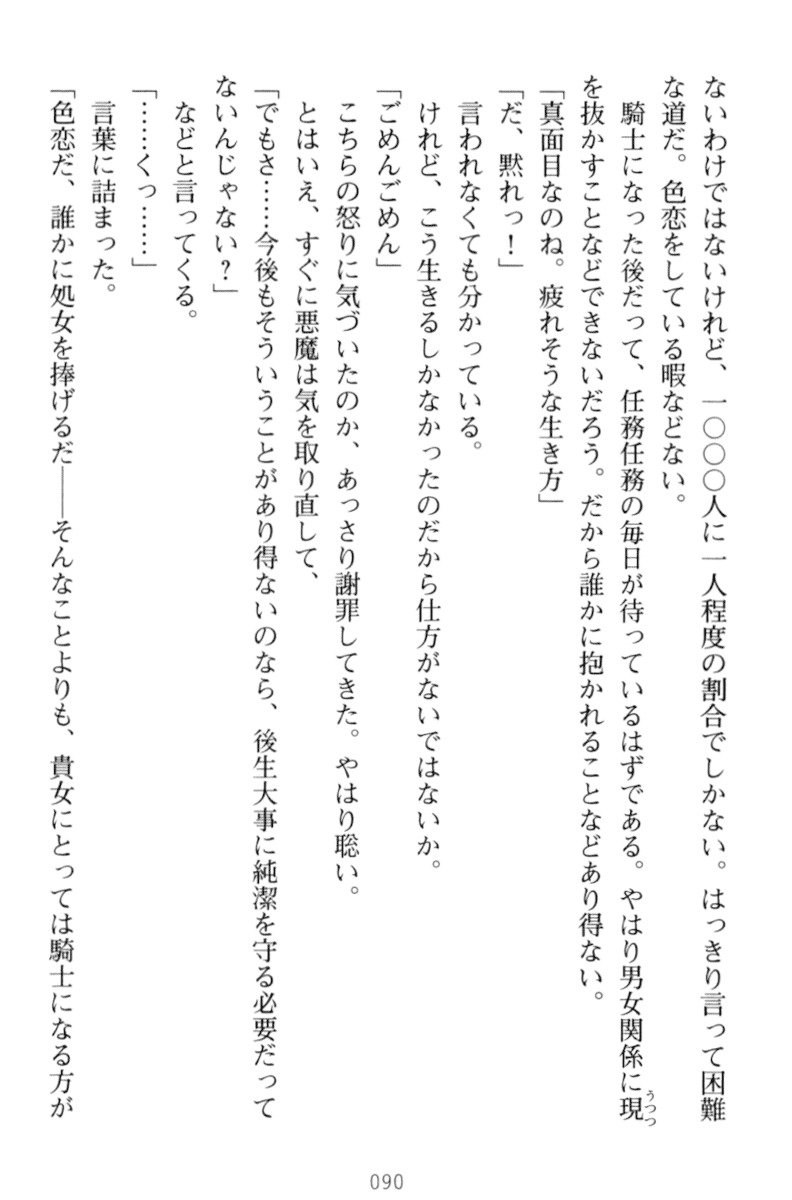 ないわけではないけれど、一〇〇〇人に一人程度の割合でしかない。はっきり言って困難
な道だ。色恋をしている暇などない。
騎士になった後だって、任務任務の毎日が待っているはずである。やはり男女関係に現
うつつ
を抜かすことなどできないだろう。だから誰かに抱かれることなどあり得ない。
「真面目なのね。疲れそうな生き方」
「だ、黙れっ！」
言われなくても分かっている。
けれど、こう生きるしかなかったのだから仕方がないではないか。
「ごめんごめん」
こちらの怒りに気づいたのか、あっさり謝罪してきた。やはり聡い。
とはいえ、すぐに悪魔は気を取り直して、
「でもさ……今後もそういうことがあり得ないのなら、後生大事に純潔を守る必要だって
ないんじゃない？」
などと言ってくる。
「……くっ……」
言葉に詰まった。
「色恋だ、誰かに処女を捧げるだ――そんなことよりも、貴女にとっては騎士になる方が
090